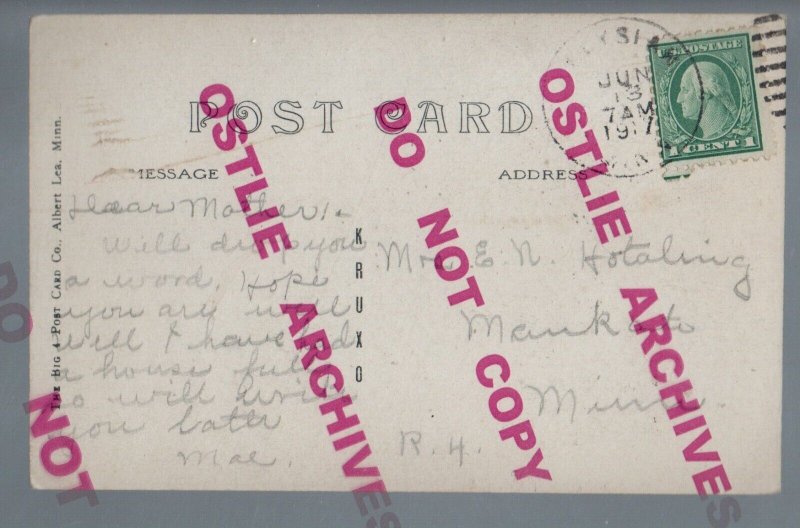 POST CARD
MESSAGE
ADDRESS
THE BIG 4 POST CARD CO., Albert Lea, Minn.
KRUXO
U.S. POSTAGE
1 CENT 1
JUN
13
7AM
MINN
Dear Mother:-
Will drop you
a word. Hope
you are well
Well I have had
a house full
so will write
you later
Mae.
E. N. Hotaling
Mankato
Minn.
R. 4.
OSTLIE ARCHIVES
DO NOT COPY
OSTLIE ARCHIVES
DO NOT